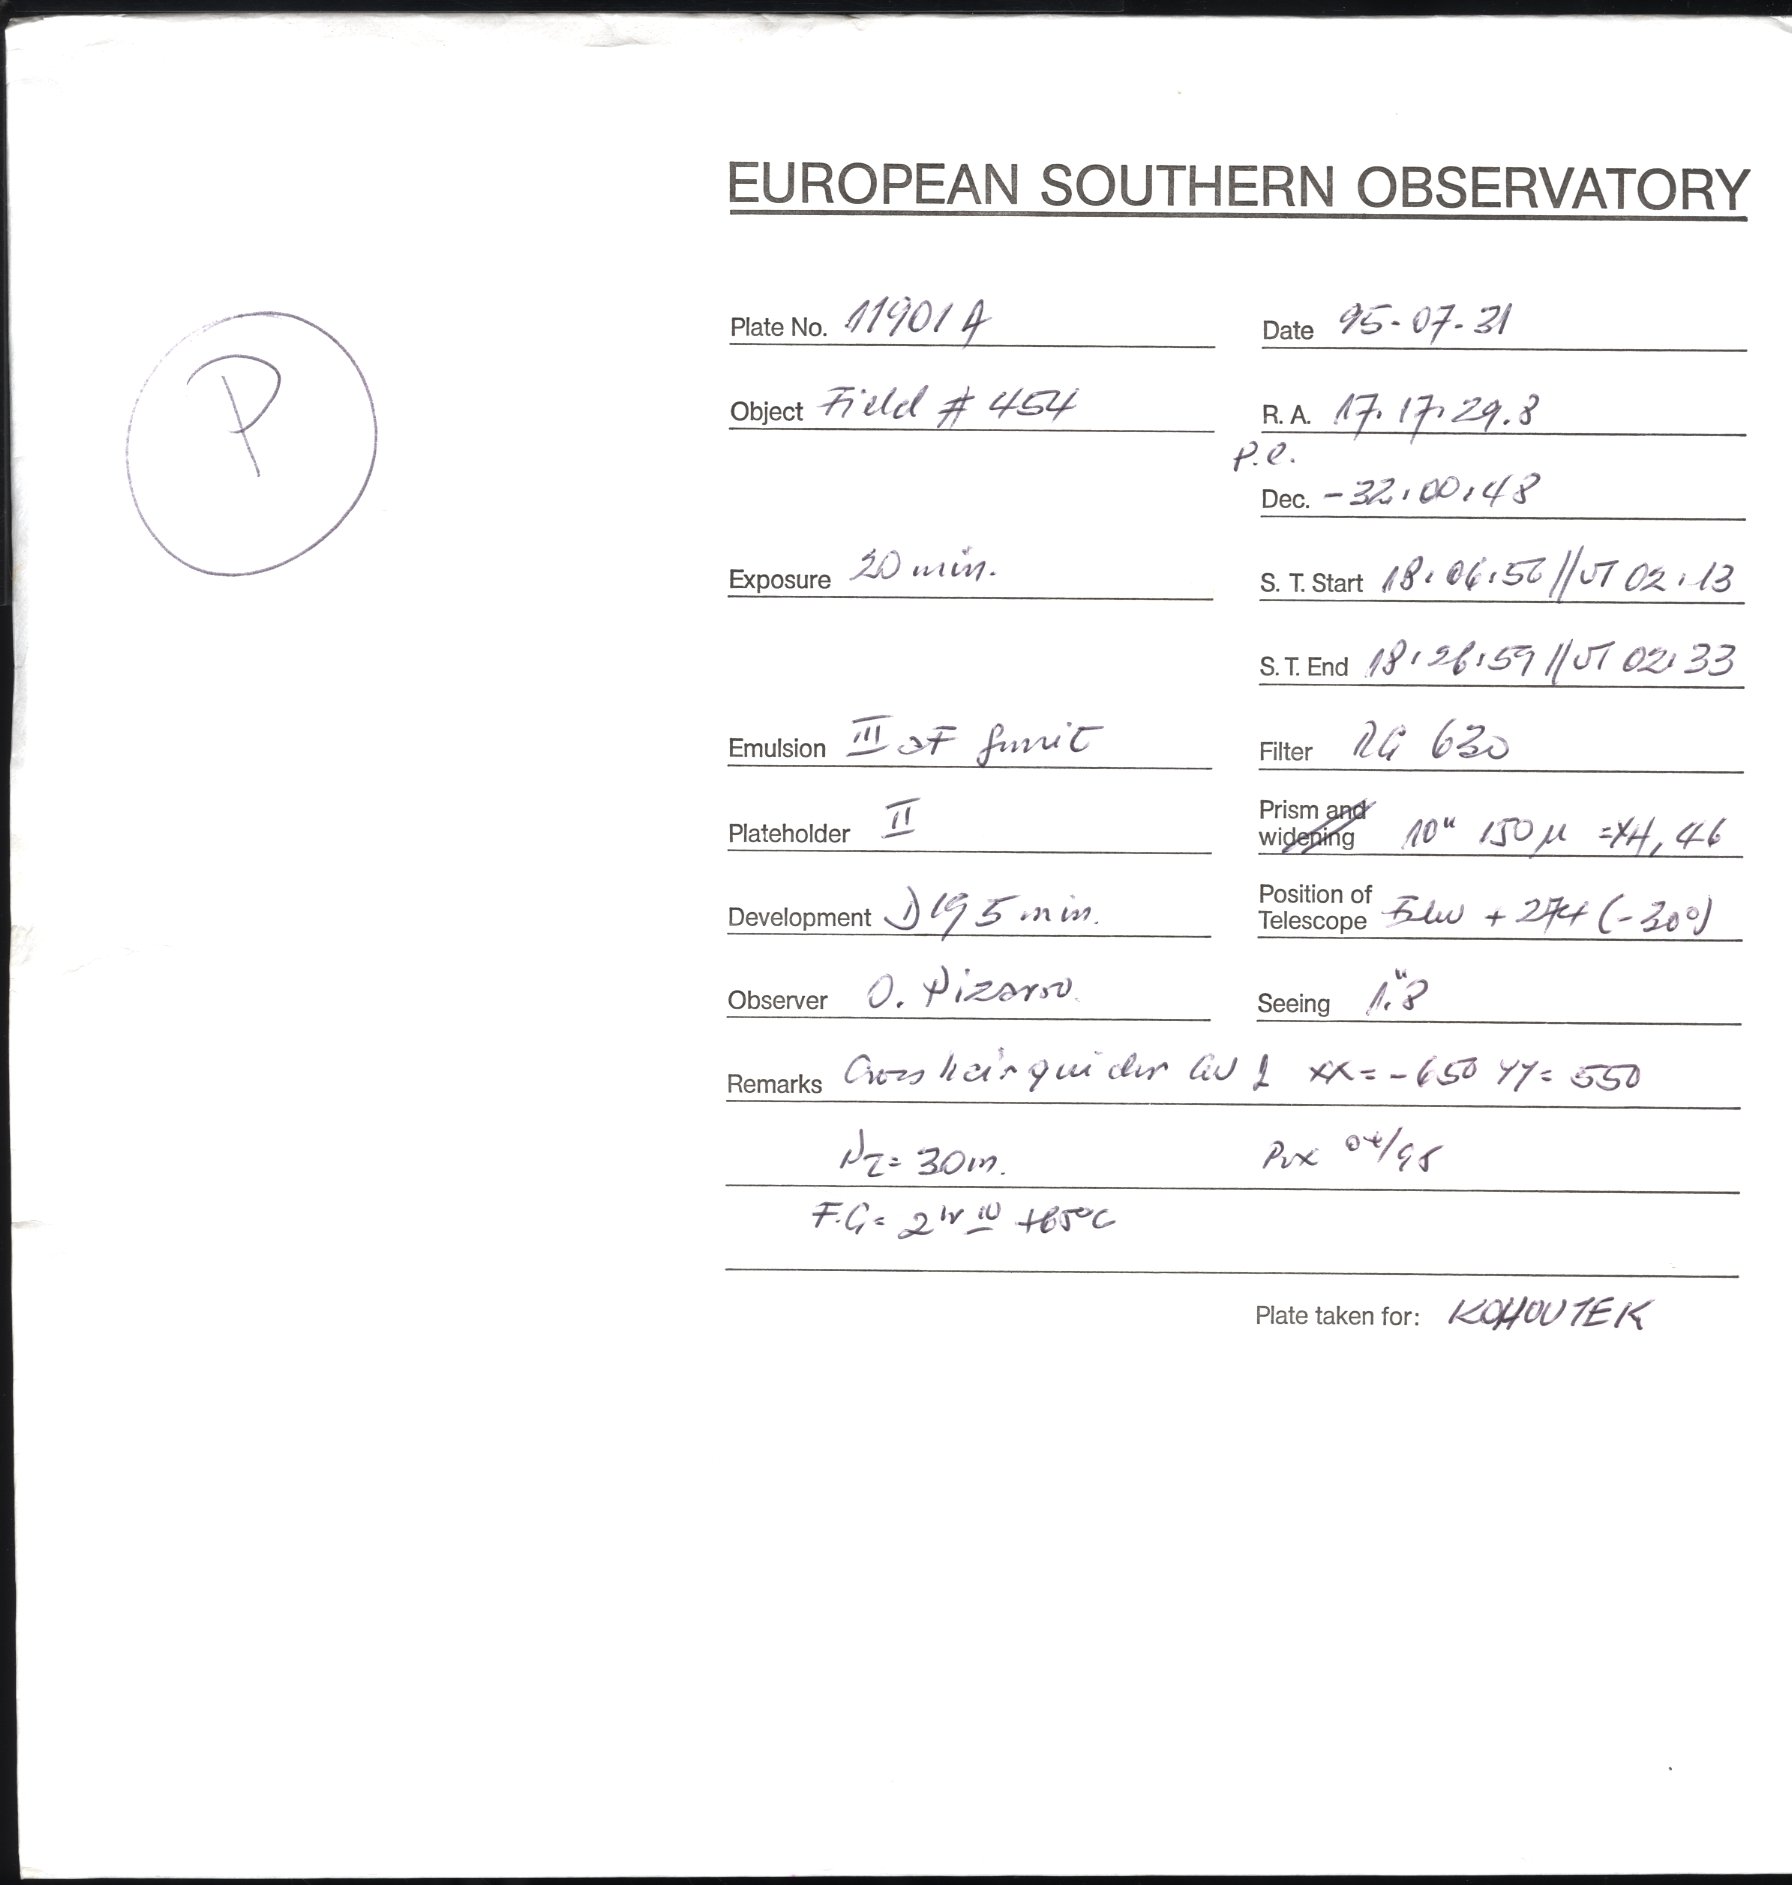 EUROPEAN SOUTHERN OBSERVATORY
P
Plate No. 11901 A
Date 95-07-31
Object Field # 454
R. A. 17.17.29.8
P.C.
Dec. -32.00.48
Exposure 20 min.
S. T. Start 18.06.56 // UT 02.13
S. T. End 18.26.59 // UT 02.33
Emulsion III aF
Filter RG 630
Plateholder II
Prism and widening 10" 150 µ = 14,46
Development D19 5 min.
Position of Telescope + 274 (-30°)
Observer O. Pizarro.
Seeing 1."8
Remarks Cross hair guider XX = -650 YY = 550
N2 = 30 m.
F.G = 2 hr +65°C
Plate taken for: KOHOUTEK